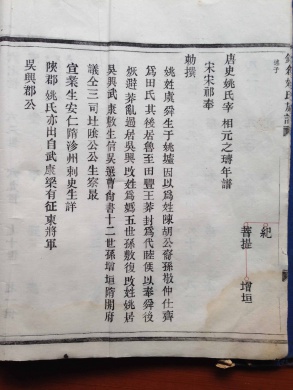 姚氏
紀
菩提
增垣
唐史姚氏宰相元之璹年譜
宋宋祁奉
勅撰
姚姓虞舜生于姚墟因以爲姓陳胡公裔孫敬仲仕齊
爲田氏其後居魯至田豐王莽封爲代睦侯以奉舜後
恢避莽亂過居吳興改姓爲媯五世孫敷復改姓姚居
吳興武康敷生信吳選曹尚書十二世孫增垣隋開府
議仝三司公公生察最
宣業生安仁隋汾州刺史生詳
陝郡姚氏亦出自武康梁有征東將軍
吳興郡公